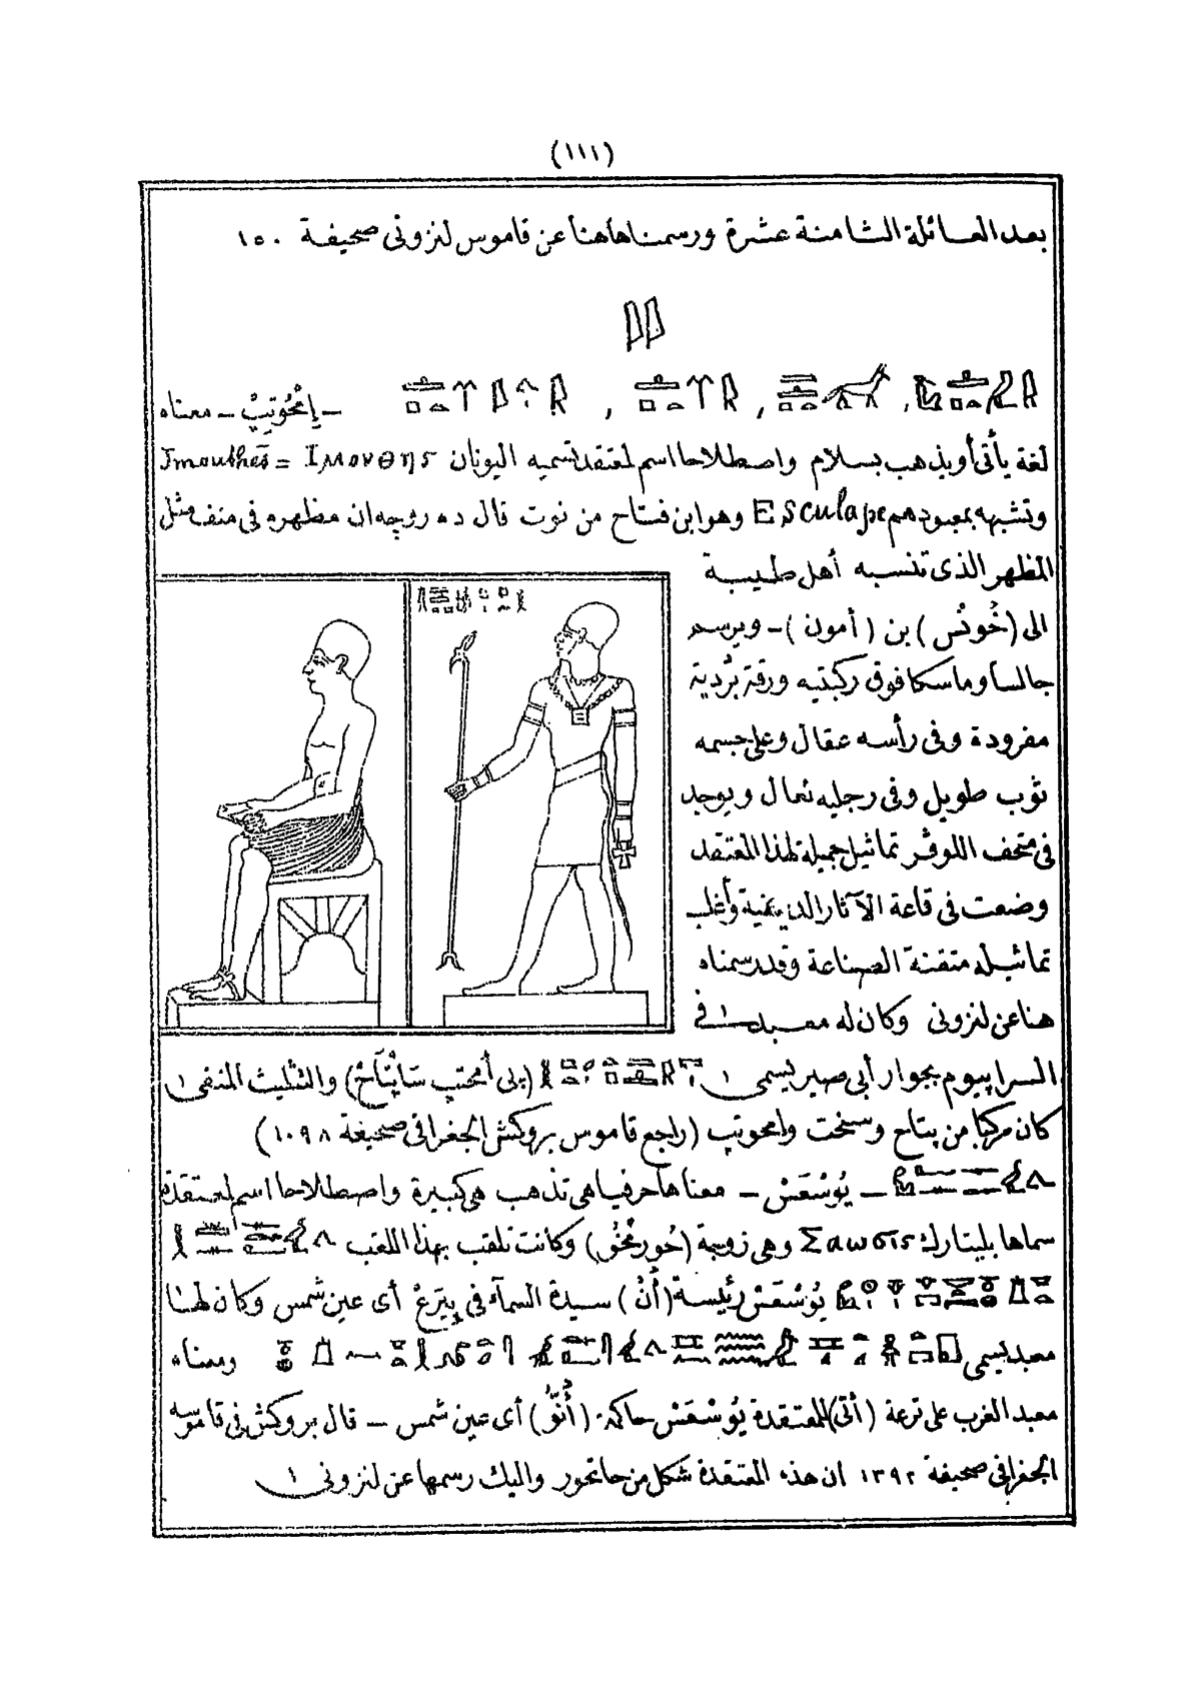 (١١١)
بعد العائلة الثامنة عشرة ورسمناها هنا عن قاموس لنزونى صحيفة ١٥٠
𓇌
– إمْحُوتِبْ – معناه
لغة يأتى أو يذهب بسلام واصطلاحا اسم لمعتقد تسميه اليونان Jmouthes = Ιμουθης
وتشبهه بمعبودهم Esculape وهو ابن فتاح من نوت قال ده روچه ان مظهره فى منف مثل
المظهر الذى تنسبه أهل طيبة
الى (خُونْس) بن (أمون) – ويرسم
جالسا وماسكا فوق ركبتيه ورقة بردية
مفرودة وفى رأسه عقال وعلى جسمه
ثوب طويل وفى رجليه نعال ويوجد
فى متحف اللوڤر تماثيل جميلة لهذا المعتقد
وضعت فى قاعة الآثار الدينية وأغلب
تماثيله متقنة الصناعة وقد رسمناه
هنا عن لنزونى وكان له معبد فى
السراپيوم بجوار أبى صير يسمى (پى أمحتب سَاپْتَاحْ) والتثليث المنفى
كان مركبا من پتاح وسخت وامحوتپ (راجع قاموس بروكش الجغرافى صحيفة ١٠٩٨)
– يُوسْعَسْ – معناها حرفيا هى تذهب هى كبيرة واصطلاحا اسم لمعتقدة
سماها بليتارك Σαωσις وهى زوجة (حُور مْخُو) وكانت تلقب بهذا اللقب
يُوسْعَسْ رئيسة (أُنْ) سيدة السمآء فى پِيتَرَعْ أى عين شمس وكان لها
معبد يسمى ومعناه
معبد الغرب على ترعة (أتى) للمعتقدة يُوسْعَسْ حاكمة (أُنُّو) أى عين شمس – قال بروكش فى قاموسه
الجغرافى صحيفة ١٣٩٢ ان هذه المعتقدة شكل من حاتحور واليك رسمها عن لنزونى